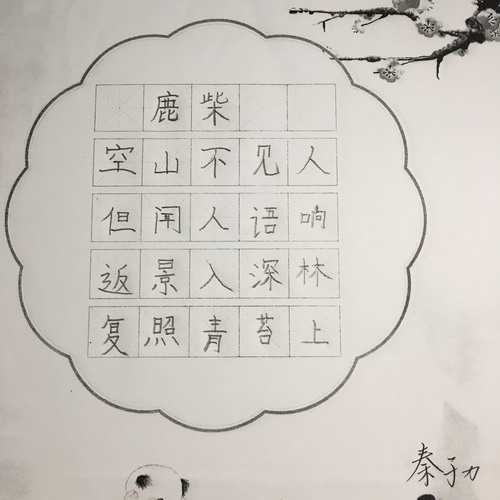 鹿柴
空山不见人
但闻人语响
返景入深林
复照青苔上
秦子力